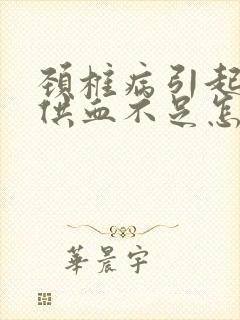 颈椎病引起
供血不足怎
華晨宇